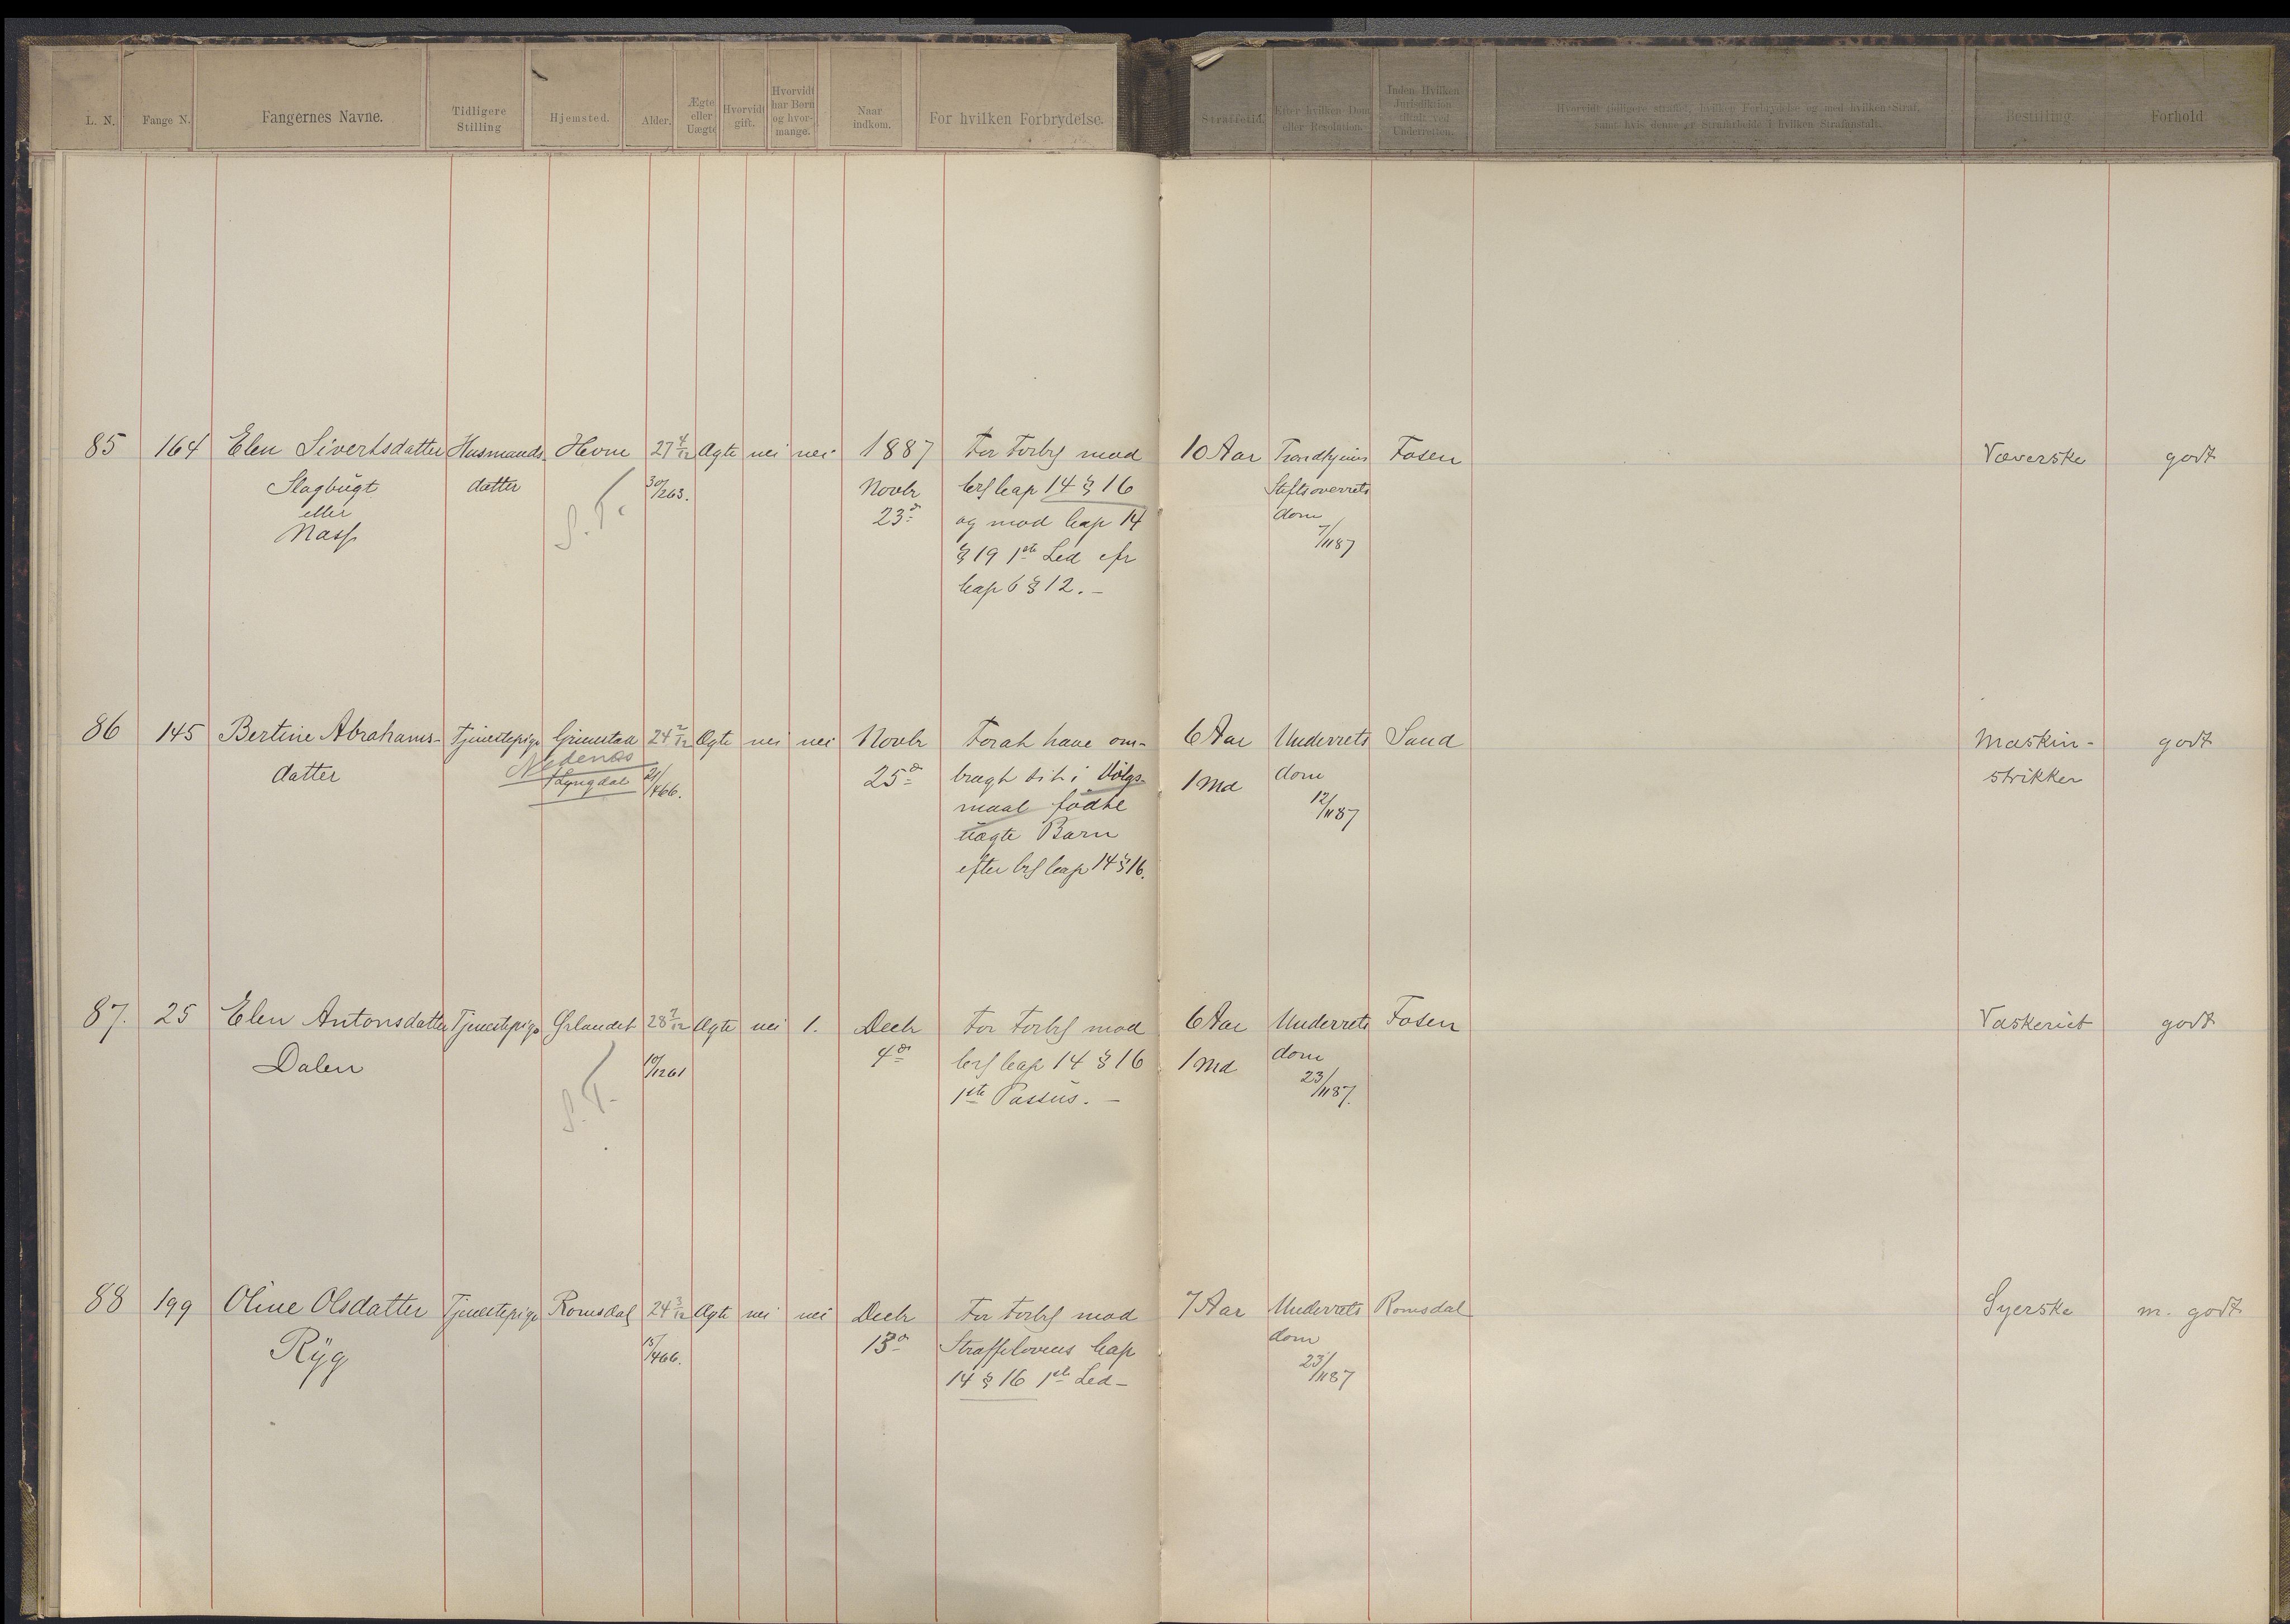 L. N.
Fange N.
Fangernes Navne.
Tidligere
Stilling
Hjemsted.
Alder.
Ægte
eller
Uægte
Hvorvidt
gift.
Hvorvidt
har Børn
og hvor-
mange.
Naar
indkom.
For hvilken Forbrydelse.
Straffetid.
Efter hvilken Dom
eller Resolution.
Inden Hvilken
Jurisdiktion
tiltalt ved
Underretten.
Hvorvidt tidligere straffet, hvilken Forbrydelse og med hvilken Straf,
samt hvis denne er Strafarbeide i hvilken Strafanstalt.
Bestilling.
Forhold
85 164 Elen Sivertsdatter Husmands Hevne 27 4/12 Ægte nei nei 1887 For Forbr mod 10 Aar Trondhjems Fosen Væverske godt
Slagbugt datter 30/12 63. Novbr Crl Cap 14 § 16 Stiftsoverrets
eller S. T. 23d og mod Cap 14 dom
Næss § 19 1ste Led cfr 7/11 87
Cap 6 § 12. -
86 145 Bertine Abrahams- Tjenestepige Grimstad 24 7/12 Ægte nei nei Novbr For at have om- 6 Aar Underrets Sand Maskin- godt
datter Nedenæs Lyngdal 21/4 66. 25d bragt sit i Dølgs- 1 Md dom strikker
maal fødte 12/11 87
uægte Barn
efter Crl Cap 14 § 16.
87. 25 Elen Antonsdatter Tjenestepige Ørlandet 28 7/12 Ægte nei 1. Decbr For Forbr mod 6 Aar Underrets Fosen Vaskeriet godt
Dalen 10/12 61 4d Crl Cap 14 § 16 1 Md dom
S. T. 1ste Passus. - 23/11 87.
88 199 Oline Olsdatter Tjenestepige Romsdal 24 3/12 Ægte nei nei Decbr For Forbr mod 7 Aar Underrets Romsdal Syerske m. godt
Ryg 15/4 66. 13d Straffelovens Cap dom
14 § 16 1ste Led - 23/11 87